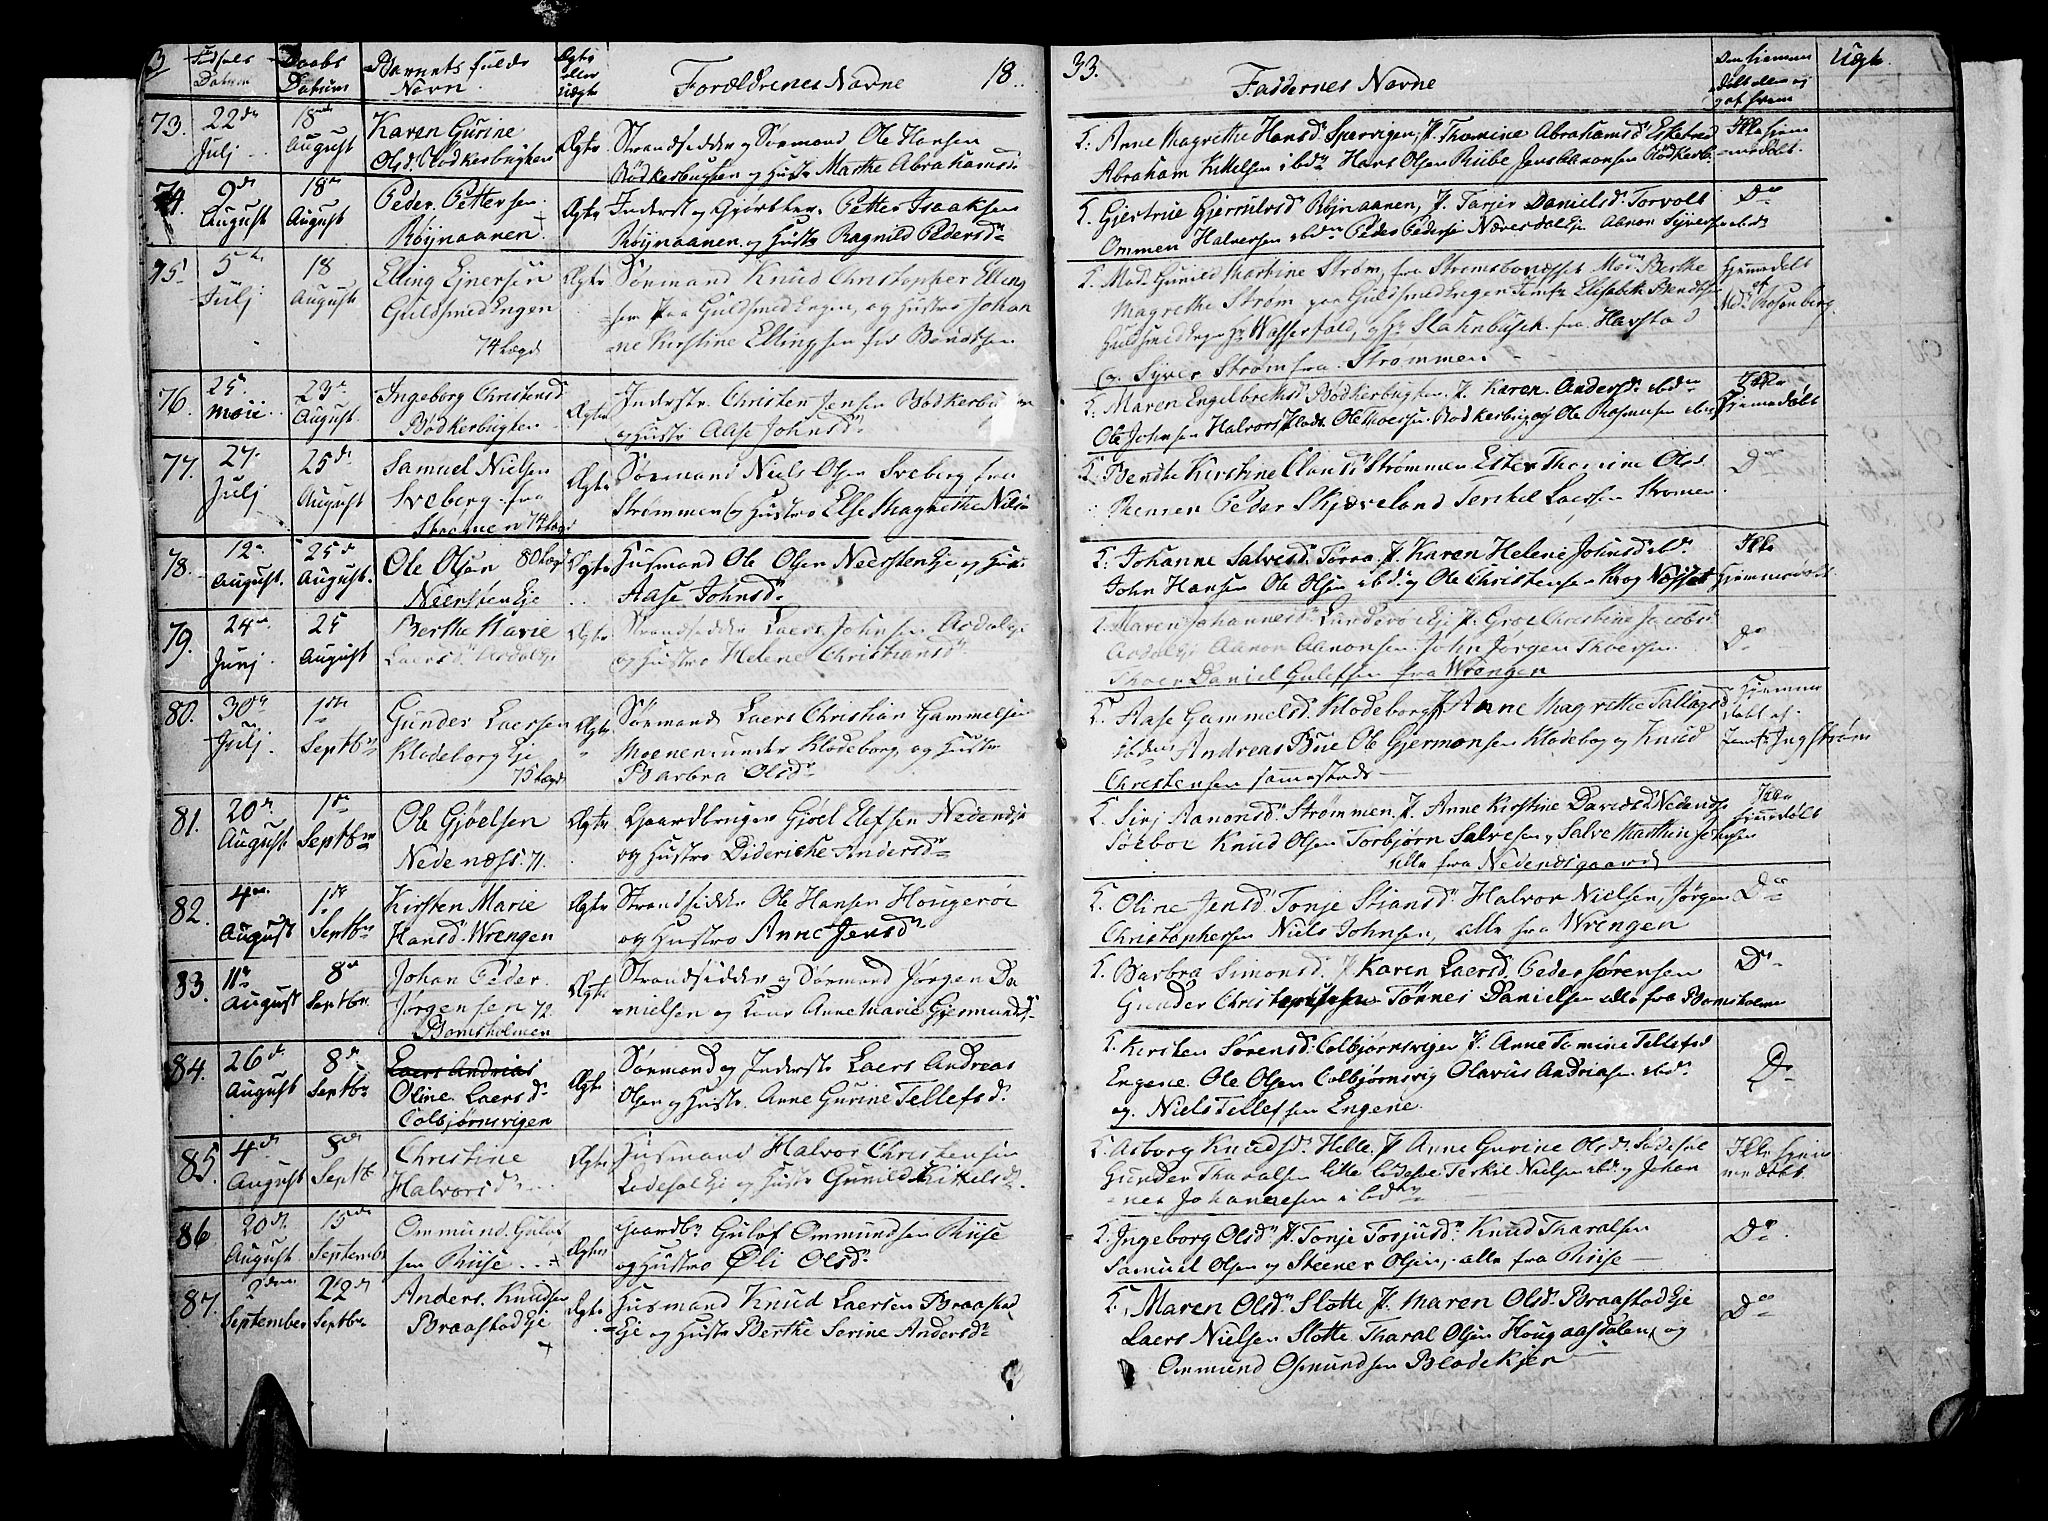 Fødsels Datum
Daabs Datum
Barnets fulde Navn
Ægte eller Uægte
Forældrenes Navne
18
33.
Faddernes Navne
Uægte
73.
22de Julj
18de August
Karen Gurine
Olsd. Bødkerbugten
Ægte
Strandsidder og Sørmand Ole Hansen
Bødkerbugten og Hustr Marthe Abrahamsd.
K: Anne Magrethe Hansd. Spærvigen, P. Thomine Abrahamsd. Eskelred
Abraham Kittelsen ibdn Hans Olsen Ribe Jens Aaronsen Bødkerb.
Ikke hiem-
=medøbt.
74.
9de August
18de August
Peder Pettersen
Røynaanen.
Ægte
Inderst og Giørtler Petter Isaaksen
Røynaanen og Hustr Ragnild Pedersd.
K. Gjertrue Gjerrulvsd. Røjnaanen, P. Tarjer Danielsd. Torvolt
Ommen Halversen ibdn Peder Pedersen Næversdaleje Aanon Syversen ibd.
Do
75
5te Julj
18 August
Elling Ejnersen
Guldsmed Engen
74 Lægd
Ægte
Sørmand Knud Christopher Elling
=sen paa Guldsmed Engen, og Hustro Johan
=ne Kirstine Ellingsen fød Bendtsen
K. Mad. Gunild Martine Strøm, fra Strømsbonæsset Mad. Berthe
Magrethe Strøm paa Guldsmed Engen Jomfr Elisabeth Bendtsen
Guldsmed Engen Hr. Wasserfald, og Hr. Slahnbusch fra Havsta
og Syver Strøm fra Strømmen
Hjemmedøbt
af
Md. Rosenberg.
76.
25. Maii
23de August
Ingeborg Christensd.
Bødkerbugten
Ægte
Inderstr. Christen Jensen Bødkerbugten
og Hustr Aase Johnsd.
K. Maren Engelbrethsd. Bødkerbugten. P. Karen Andersd. ibdn
Ole Johnsen Halvors Plads Ole Thoersen Bødkerbug. og Ole Rasmusen ibdn
Ikke
Hjemmedøbt
77.
27. Julj
25de August
Samuel Nielsen
Sveberg fra
Strømmen 74 Lægd
Ægte
Sørmand Niels Olsen Sveberg fra
Strømmen og Hustro Else Magrethe Niels
K: Bendte Kirstine Clausd. Strømmen Ester Thomine Olsd.
Peder Skjæveland Terchel Laersen Strømen
Do
78.
12te August.
25de August.
Ole Olsen 80 Lægd
Neersten Eje
Ægte
Husmand Ole Olsen Neersten Eje og Hus.
Aase Johnsd.
K. Johanne Salvesd. Torra, P. Karen Helene Johnsd. ibd.
John Hansen Ole Olsen ibd. og Ole Christensen Krog Næsset
Ikke
Hjemmedøbt
79.
24de Junj.
25 August
Berthe Marie
Laersd. Aasdaleje
Ægte
Strandsidder Laers Johnsen Aasdaleje
og Hustro Helene Christiansd.
K. Maren Johannesd. Lunderoe Eje P. Groe Christine Jacobsd.
Aasdaleje Aanon Aanonsen John Jørgen Thoersen
Thoer Daniel Gulefsen fra Wrengen
Do
80.
30te Julj.
1ste Septbr
Gunder Laersen
Klodeborg Eje
75 Lægd
Ægte
Sørmand Laers Christian Gammelsen
Moenen under Klodeborg og Hustr
Barbra Olsd.
K. Aase Gammelsd. Klodeborg P. Anne Magrethe Tallagsd.
ibdn Andreas Bue Ole Gjermonsen Klodeborg og Knud
Christensen sammestæds
Hjemme
døbt af
Jomfr Ingstrøm
81.
20de August
1ste Septbr
Ole Gjøelsen
Nedenæss. 71.
Ægte
Gaardbruger Gjøel Elefsen Nedenæs
og Hustro Didericke Andersd.
K. Sirj Aanonsd. Strømmen P. Anne Kirstine Davidsd. Nedenæs
Søeboe Knud Olsen Torbjørn Salvesen, Salve Marthin Jensen
alle fra Nedenæsgaard
Ikke
Hjemedøbt
82.
4de August
1ste Septbr
Kirsten Marie
Hansd. Wrengen
Ægte
Strandsidder Ole Hansen Hougeroe
og Hustro Anne Jensd.
K. Oline Jensd. Tonje Stiansd. Halvor Nielsen, Jørgen
Christophersen Niels Johnsen, alle fra Wrengen
Do
83.
11te August
8de Septbr
Johan Peder
Jørgensen 72.
Bomsholmen
Ægte
Strandsidder og Sørmand Jørgen Da
=nielsen og Kone Anne Marie Gjermundsd.
K. Barbra Simonsd. P. Karen Laersd. Peder Sørensen
Gunder Christophersen Tønnes Danielsen alle fra Bomsholmen
Do
84.
26de August
8de Septbr
Laers Andreas
Oline Laersd.
Colbjørnsvigen
Ægte
Sørmand og Inderste Laers Andreas
Olsen og Hustr. Anne Gurine Tellefsd.
K. Kirsten Sørensd. Colbjørnsvigen P. Anne Tomine Tellefsd.
Engene. Ole Olsen Colbjørnsvig Olavus Andriasen ibd.
og. Niels Tellefsen Engene.
Do
85.
4de August
8de Septbr
Christine
Halvorsd.
Ægte
Husmand Halvor Christensen
Ledesøl Eje og Hustr Gunild Kittelsd.
K. Asborg Knudsd. Helle, P. Anne Gurine Olsd. Lødesøl
Gunder Tharalsen Lille Lødesøl Terkil Nielsen ibd. og Johan
=nes Johannesen ibdn
Ikke hjem
medøbt.
86
20de August
15de Septembr
Ommund Gulof
sen Riise
Ægte
Gaardbr. Gulof Ommundsen Riise
og Hustro Øli Olsd.
K. Ingeborg Olsd. P. Tonje Torjusd. Knud Tharalsen
Samuel Olsen og Steener Olsen, alle fra Riise
Do
87.
2den September
22de Septbr
Anders Knudsen
Braastad Eje
Ægte
Husmand Knud Laersen Braastad
Eje og Hustr Berthe Serine Andersd.
K. Maren Olsd. Slotte P. Maren Olsd. Braastad Eje
Laers Nielsen Slotte Tharal Olsen Hougaasdalen og
Ommund Osmundsen Blodekjer
Do